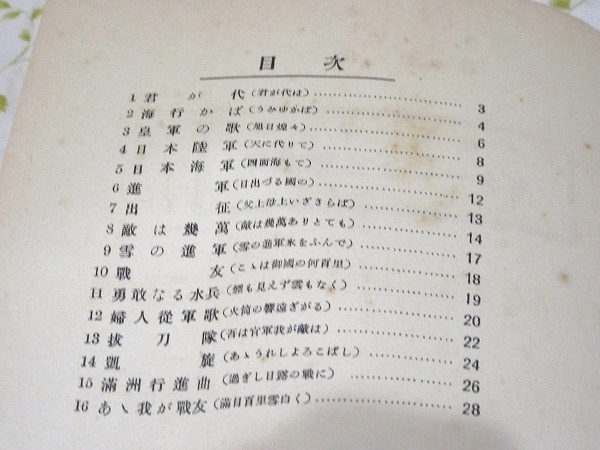 目次
1 君が代(君が代は) 3
2 海行かば(うみゆかば) 4
3 皇軍の歌(旭日煌々) 6
4 日本陸軍(天に代りて) 8
5 日本海軍(四面海もて) 9
6 進軍(日出づる國の) 12
7 出征(父上母上いざさらば) 13
8 敵は幾萬(敵は幾萬ありとても) 14
9 雪の進軍(雪の進軍氷をふんで) 17
10 戰友(こゝは御國の何百里) 18
11 勇敢なる水兵(煙も見えず雲もなく) 19
12 婦人從軍歌(火筒の響遠ざかる) 20
13 拔刀隊(吾は官軍我が敵は) 22
14 凱旋(あゝうれしよろこばし) 24
15 滿洲行進曲(過ぎし日露の戰に) 26
16 あゝ我が戰友(滿目百里雪白く) 28